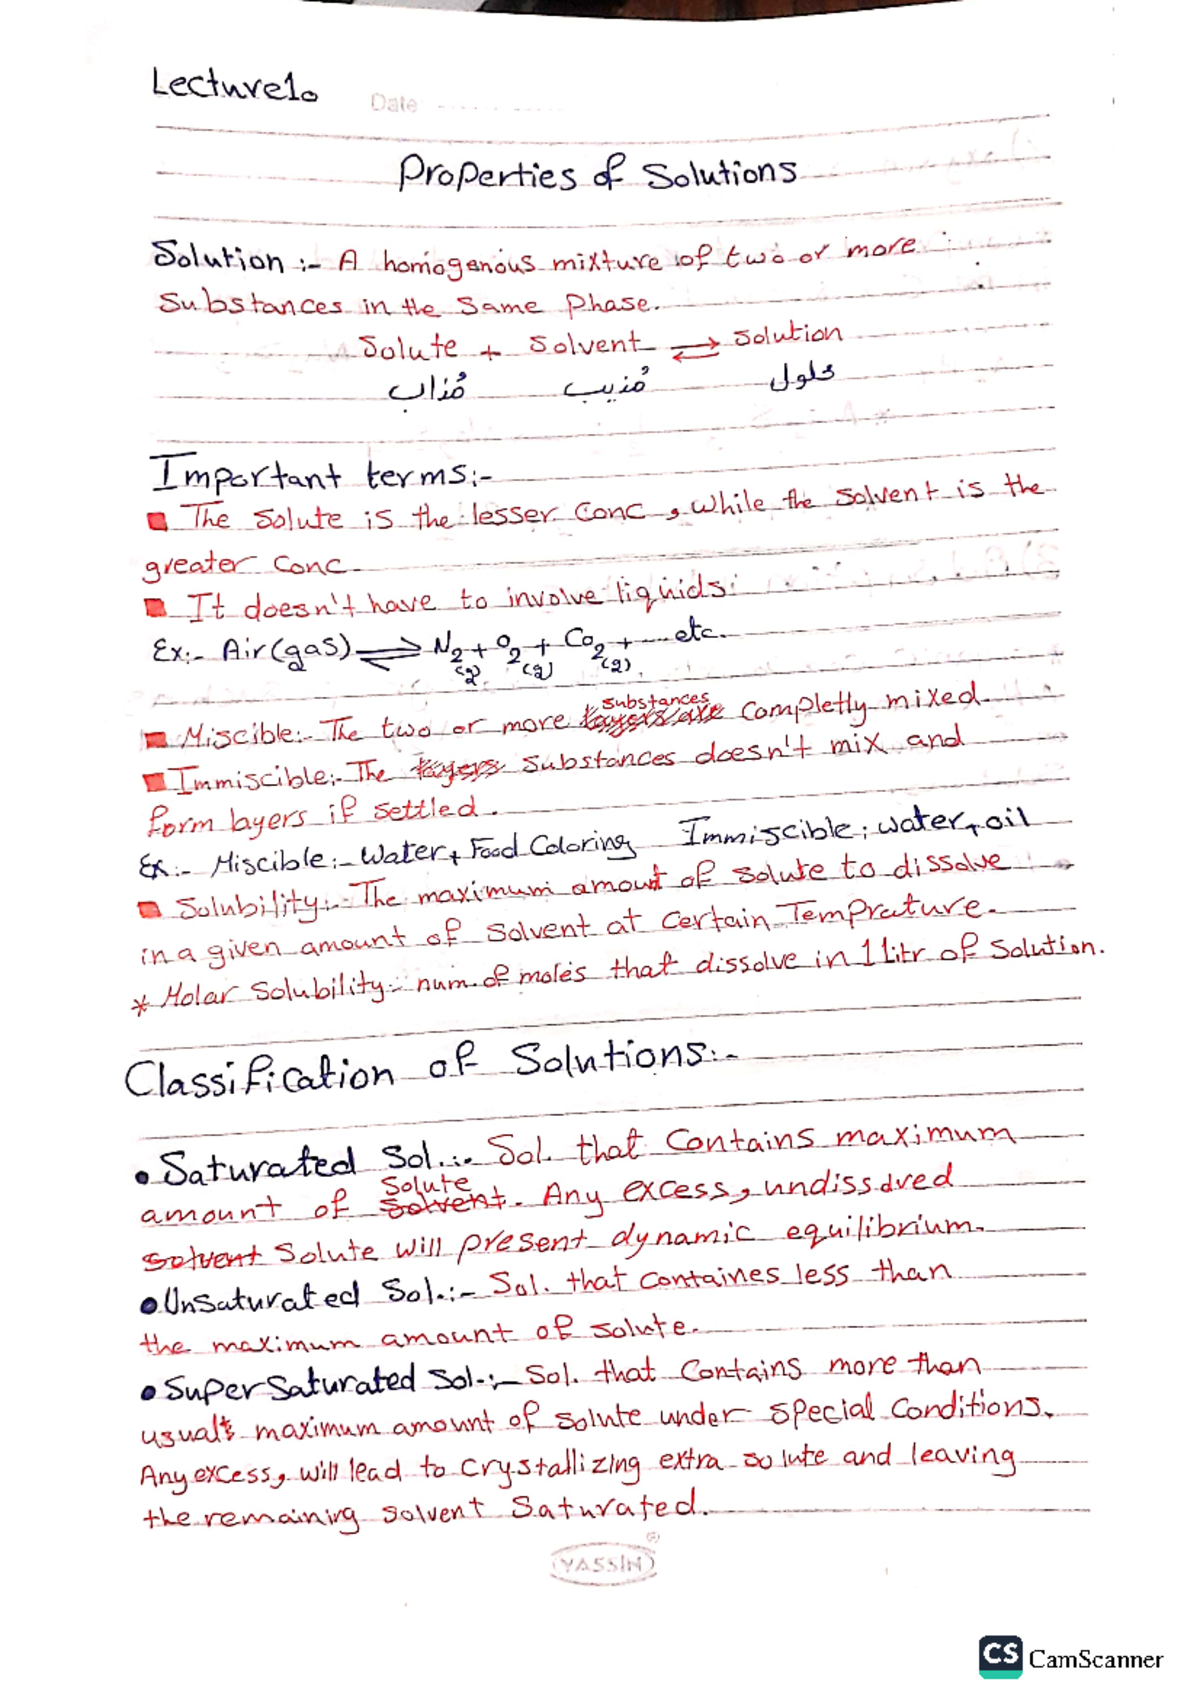 Lecture1.
Date
Properties of Solutions
Solution :- A homogenous mixture of two or more
Substances in the Same Phase.
Solute + Solvent ⇌ Solution
مُذاب مُذيب محلول
Important terms:-
The Solute is the lesser Conc , while the Solvent is the
greater Conc.
It doesn't have to involve liquids.
Ex:- Air(gas) ⇌ N2 + O2 + CO2 + ... etc.
(g) (g) (g)
Miscible:- The two or more substances completly mixed.
Immiscible:- The Substances doesn't mix and
form layers if settled.
Ex:- Miscible:- Water + Food Coloring Immiscible: water + oil
Solubility:- The maximum amount of Solute to dissolve
in a given amount of Solvent at Certain Temprature.
* Molar Solubility:- num. of moles that dissolve in 1 Litr of Solution.
Classification of Solutions:-
• Saturated Sol.:- Sol. that Contains maximum
amount of Solute. Any excess, undissolved
Solute will present dynamic equilibrium.
• UnSaturated Sol.:- Sol. that containes less than
the maximum amount of solute.
• SuperSaturated Sol.:- Sol. that Contains more than
usual maximum amount of solute under special Conditions.
Any excess, will lead to crystallizing extra solute and leaving
the remaining Solvent Saturated.
YASSIN
CS CamScanner